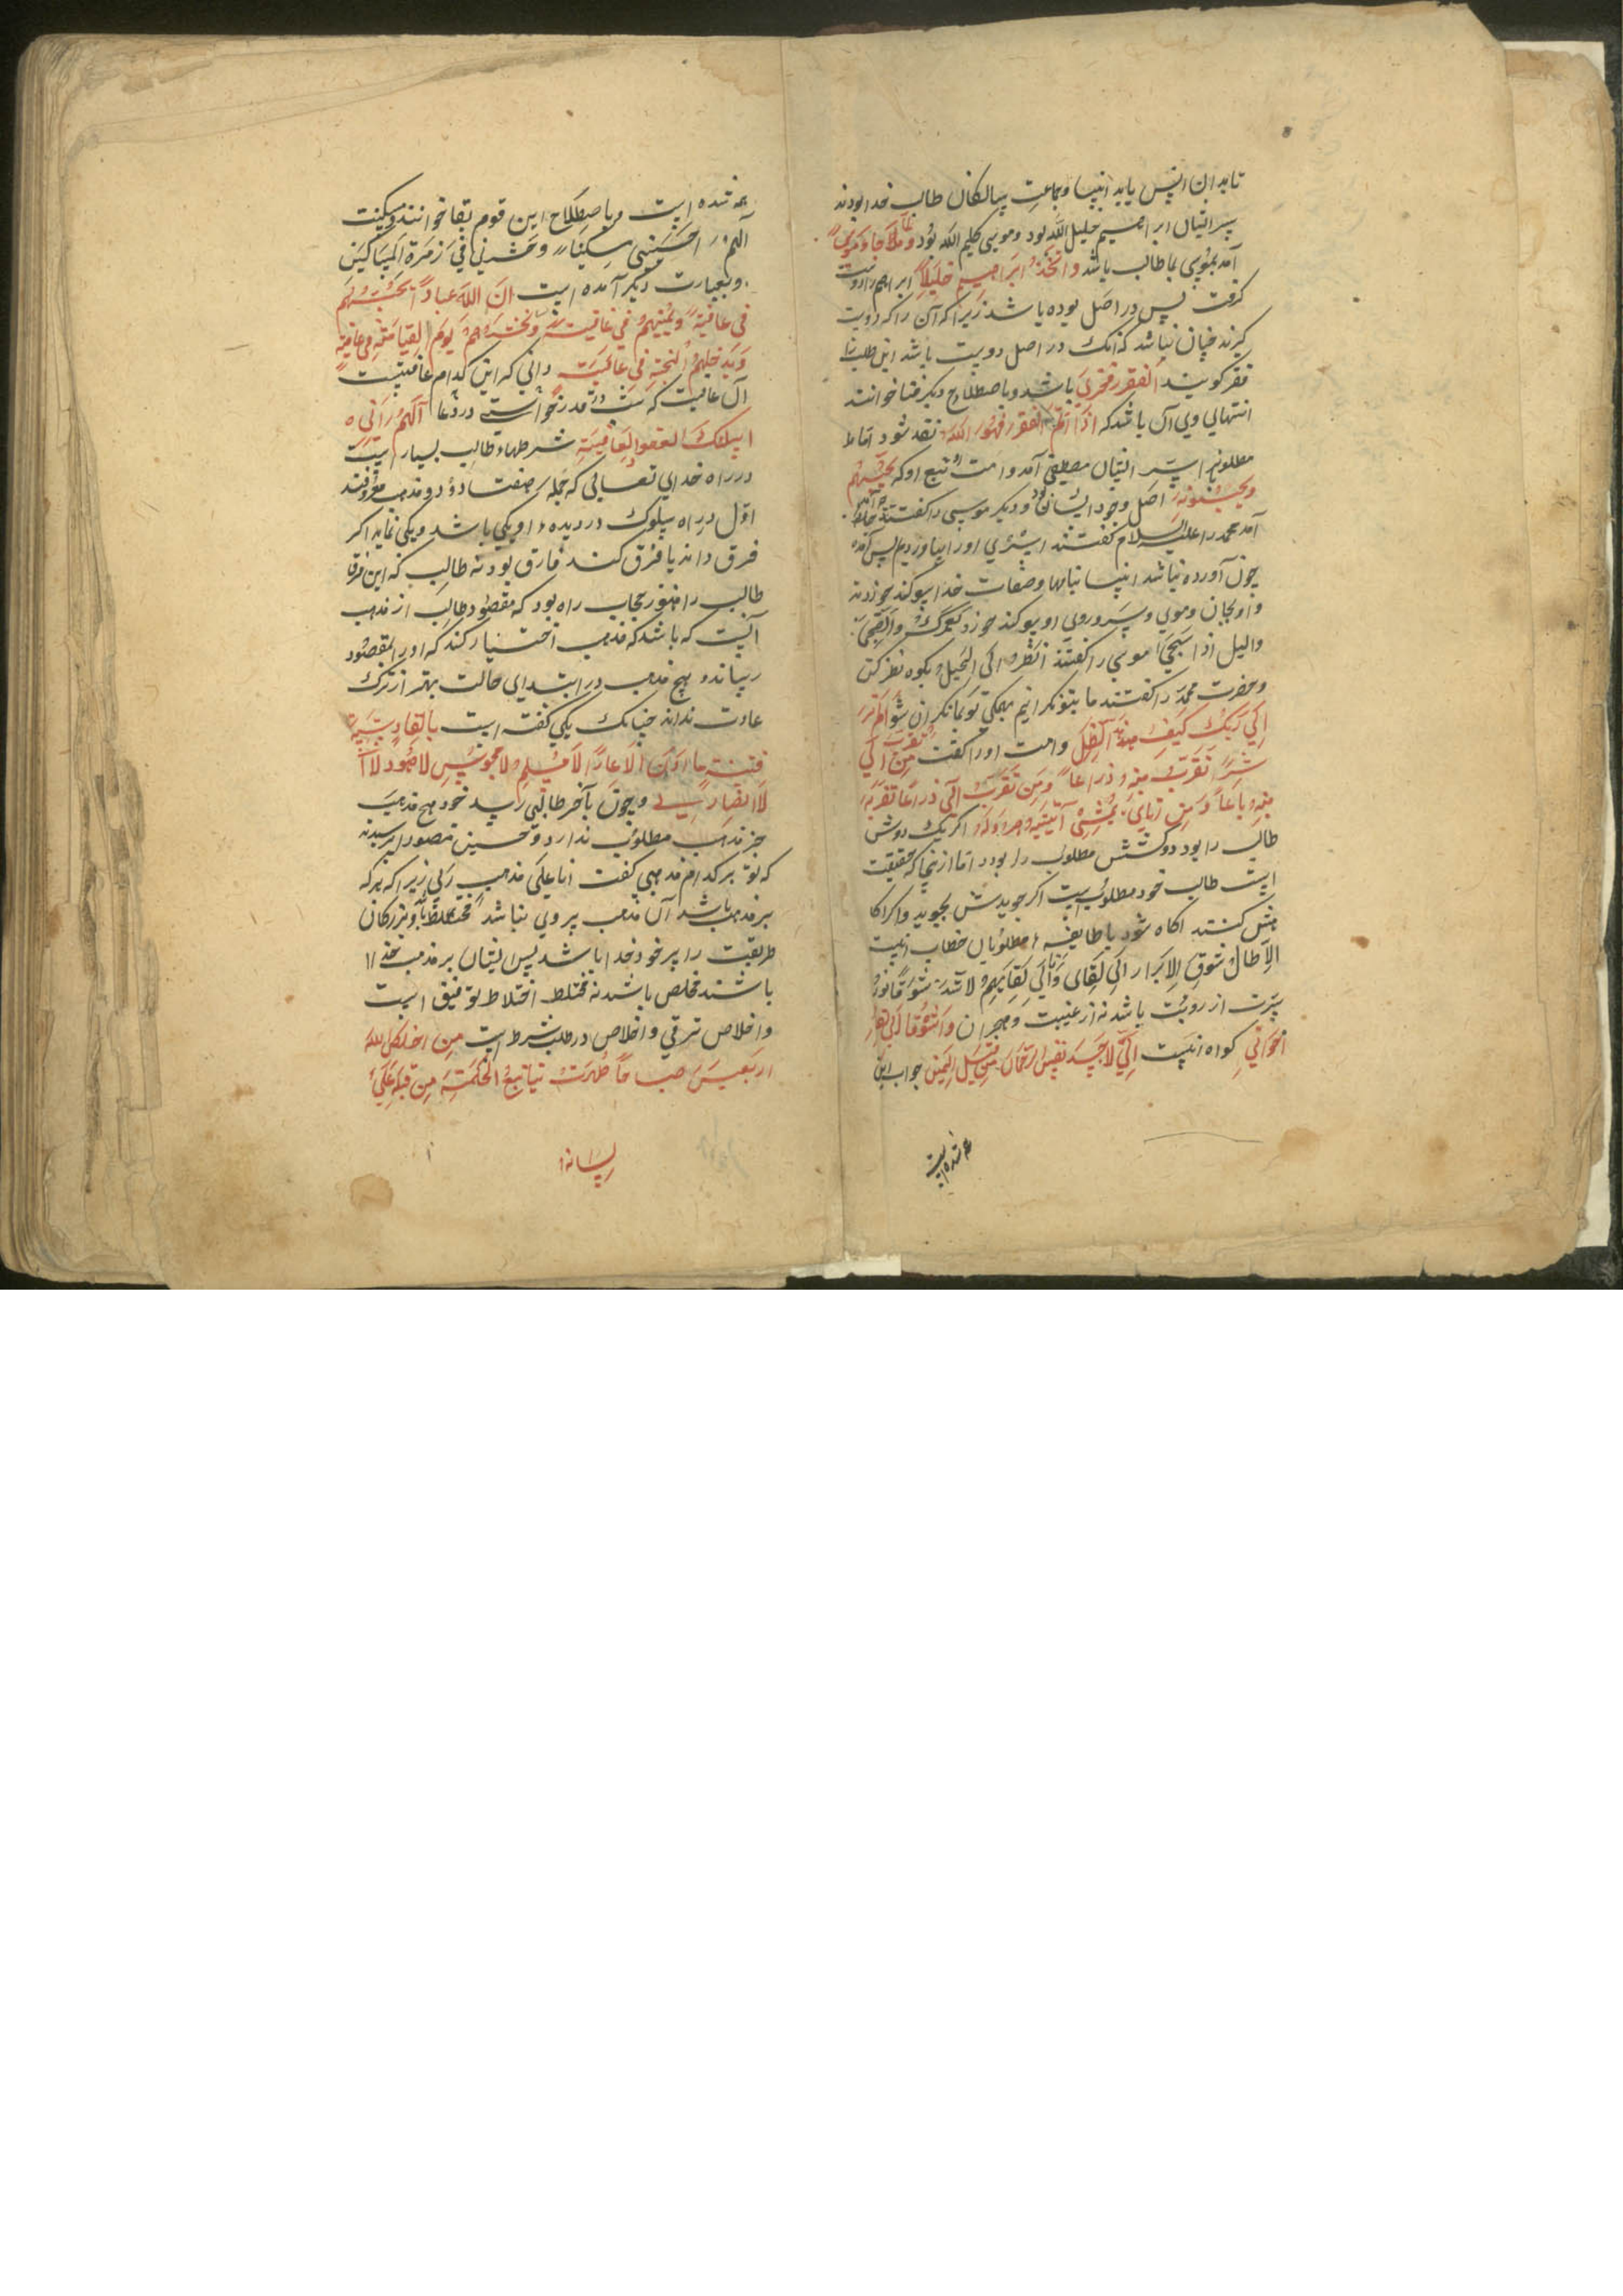 تا بدان انس یابد انبیا و جماعت سالکان طالب خدا بودند
سر ایشان ابراهیم خلیل الله بود و موسی کلیم الله بود و لما جاء موسی
آمد بموسی ما طالب باشد واتخذ ابراهیم خلیلا ابراهیم را دوست
گرفت پس در اصل بوده باشد زیرا که آن را که دوست
گیرند چنان نباشد که آنک در اصل دوست باشد این طلب را
فقر گویند الفقر فخری باشد و باصطلاح دیگر فنا خوانند
انتهای وی آن باشد که اذا اتم الفقر فهو الله نقد شود اما
مطلوبرا سر ایشان مصطفی آمد و امت تبع او که یحبهم
ویحبونه اصل وجود ایشان بود و دیگر موسی را گفتند جاء
آمد محمد را علیه السلام گفتند اسری او را بیاوردیم پس آمده
چون آورده نباشد انبیا بنامها و صفات خدا سوگند خوردند
و او بجان و موی و سر و روی او سوگند خورد لعمرک والضحی
واللیل اذا سجی موسی را گفتند انظر الی الجبل بکوه نظر کن
و حضرت محمد را گفتند ما بتو نگرانیم بهمگی تو بما نگران شو الم تر
الی ربک کیف مد الظل و امت او را گفت من تقرب الی
شبرا تقربت منه ذراعا ومن تقرب الی ذراعا تقربت
منه باعا ومن اتانی یمشی اتیته هرولة اگر یک روش
طالب را بود دو کشش مطلوب را بود اما از آنجا که حقیقت
است طالب خود مطلوب است اگر جویدش بجوید و اگر آگا
هش کنند آگاه شود با طایفه مطلوبان خطاب اینست
الا طال شوق الابرار الی لقای وانا الی لقایهم لاشد شوقا
سرت از رویت باشد نه از غیبت و هجران واشوقا الی لقاء
اخوانی گواه اینست انی لاجد نفس الرحمان من قبل الیمن جواب این
هم شده است
هم شده است و باصطلاح این قوم بقا خوانند و مسکینت
اللهم احینی مسکینا وحشرنی فی زمرة المساکین
و بعبارت دیگر آمده است ان الله عبادا یحییهم
فی عافیة ویمیتهم فی عافیة ویحشرهم یوم القیامة فی عافیة
ویدخلهم الجنة فی عافیة دانی که این کدام عافیتست
آن عافیت که سید درخواستی در دعا اللهم انی
اسئلک العفو والعافیة شرطهاء طالب بسیار است
در راه خدای تعالی که جمله هفتاد و دو مذهب معروفند
اول در راه سلوک در دیده او یکی باشد و یکی نماید اگر
فرق داند یا فرق کند فارق بود نه طالب که این فرقا
طالب را هنوز حجاب راه بود که مقصود طالب از مذهب
آنست که باشد که مذهب اختیار کند که او را بمقصود
رساند و هیچ مذهب در ابتدای حالت بهتر از ترک
عادت نداند چنانک یکی گفته است بالقادسیة
فتیة ما ان یرون العار عارا لا مسلم لا مجوس لا یهود لا
لا نصاری و چون بآخر طالبی رسد خود هیچ مذهب
جز مذهب مطلوب ندارد و حسین منصور را پرسیدند
که تو بر کدام مذهبی گفت انا علی مذهب ربی زیرا که هر که
بر مذهبی باشد آن مذهب پیروی نباشد مختلط بود و بزرگان
طریقت را پیر خود خدا باشد پس ایشان بر مذهب خدا
باشند مخلص باشند نه مختلط اختلاط توفیق است
و اخلاص ترقی و اخلاص در طلب شرط است من اخلص لله
اربعین صباحا ظهرت ینابیع الحکمة من قلبه علی
لسانه